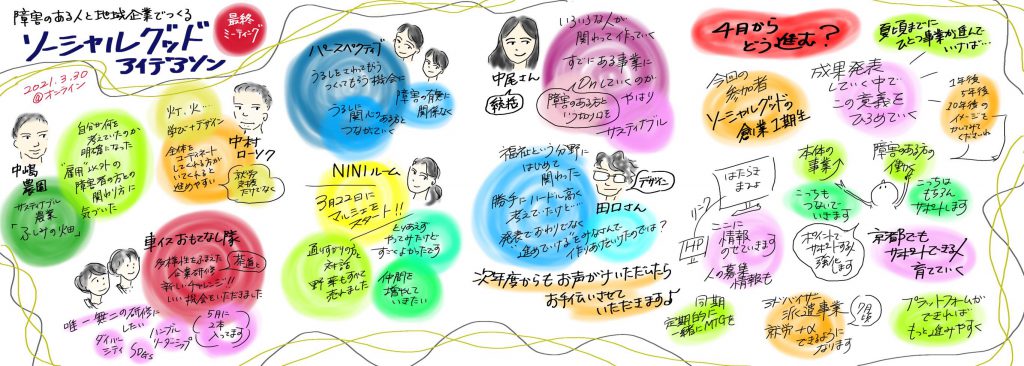 障害のある人と地域企業でつくる
ソーシャルグッド
アイデアソン
最終
ミーティング
2021.3.30
@オンライン
中嶋
農園
サステイナブル
農業
「ふしみの畑」
自分が何を
考えていたのか
明確になった
雇用以外の
障害者の方との
関わり方に
気づいた
灯、火…
学び+デザイン
全体を
コーディネート
してくれる方が
いてくれると
進めやすい
中村
ローソク
車イスおもてなし隊
多様性をふまえた
企業研修
新しいチャレンジ!!
いい機会をいただきました
茶道と
唯一無二の研修に
したい
ダイバー
シティ
SDGs
ハンブル
リーダーシップ
5月に
2本
入ってます
パースペクティブ
うるしにさわってもらう
つくってもらう機会に
障害の有無に
関係なく
うるしに
関心がある方と
つながっていく
NINIルーム
3月22日に
マルシェを
スタート!!
通りすがりの方と
対話
野菜もすべて
売れました
とりあえず
やってみたけど
すごくよかったです
仲間を
増やして
いきたい
中尾さん
統括
いろいろな人が
関わって作っていく
すでにある事業に
Onしていくのか
障害のある方と
いうだけでなく
やはり
サスティナブル
福祉という分野に
はじめて
関わった
勝手にハードル高く
考えていたけど…
発表でおわりでなく
進めている
みなさんで
作りあげていったのでは?
デザイン
田口さん
次年度からもお声かけいただいたら
お手伝いさせて
いただきますよ
4月から
どう進む?
夏頃までに
ひとつ事業が進んで
いけば…
今回の
参加者
ソーシャルグッドの
創業1期生
成果発表
していく中で
この意義を
ひろめていく
1年後
5年後
10年後の
イメージを
はたらき
まひょ
リンク
HP
ここに
情報
のせていきます
人の募集
情報も
本体の
事業↑
こっちも
つないで
いきます
障害のある方の
働き方
こっちは
もちろん
サポートします
ポイントで
サポートする人
強化します
京都でも
サポートできる人
育てていく
同期
定期的に
一緒にMTGを
アドバイザー
派遣事業
就労+α
できるように
なります
7月頃
プラットフォームが
できれば
もっと進みやすく